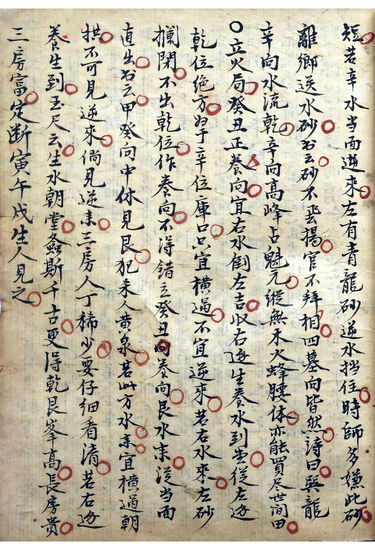 短若辛水当面逆来左有青龍砂逆水拦住時師多嫌此砂
離鄉送水砂书云砂不飛揚官不拜相四墓向皆然詩曰巽龍
辛向水流乾辛向高峰占魁元縱無木火蜂腰体亦能買尽世間田
〇立火局癸丑正養向宜右水倒左吉收右邊生養水到堂從左邊
乾位绝方好于辛位庫口只宜横過不宜逆来若右水来左砂
拦閉不出乾位作養向不得錯立癸丑向養向艮水来從当面
直出书云甲癸向中休見艮犯来八黄泉若此方水来宜横過朝
拱不可見逆来倘見逆来三房人丁稀少要仔細看清若右边
養生到玉尺云生水朝堂螽斯千古更得乾艮峯高長房贵
三房富定断寅午戌生人見之